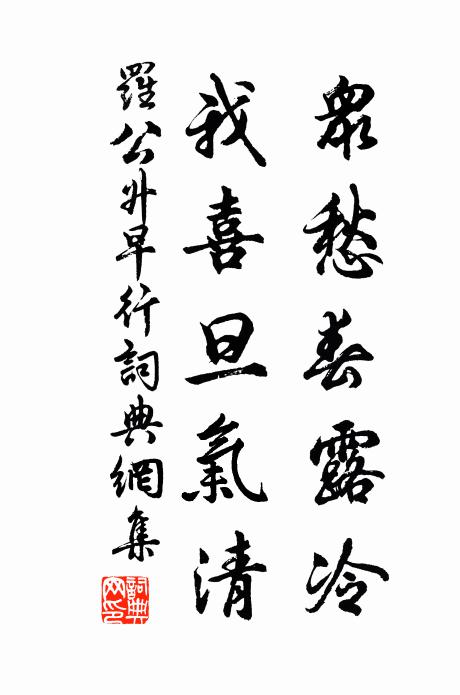 眾愁春露冷
我喜旦氣清
羅公升早行詞典網集
詞典网印